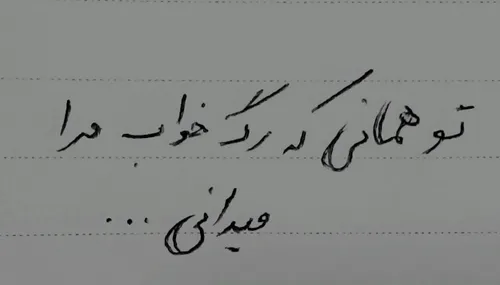 تو همانی که رگ خواب مرا
میدانی ...